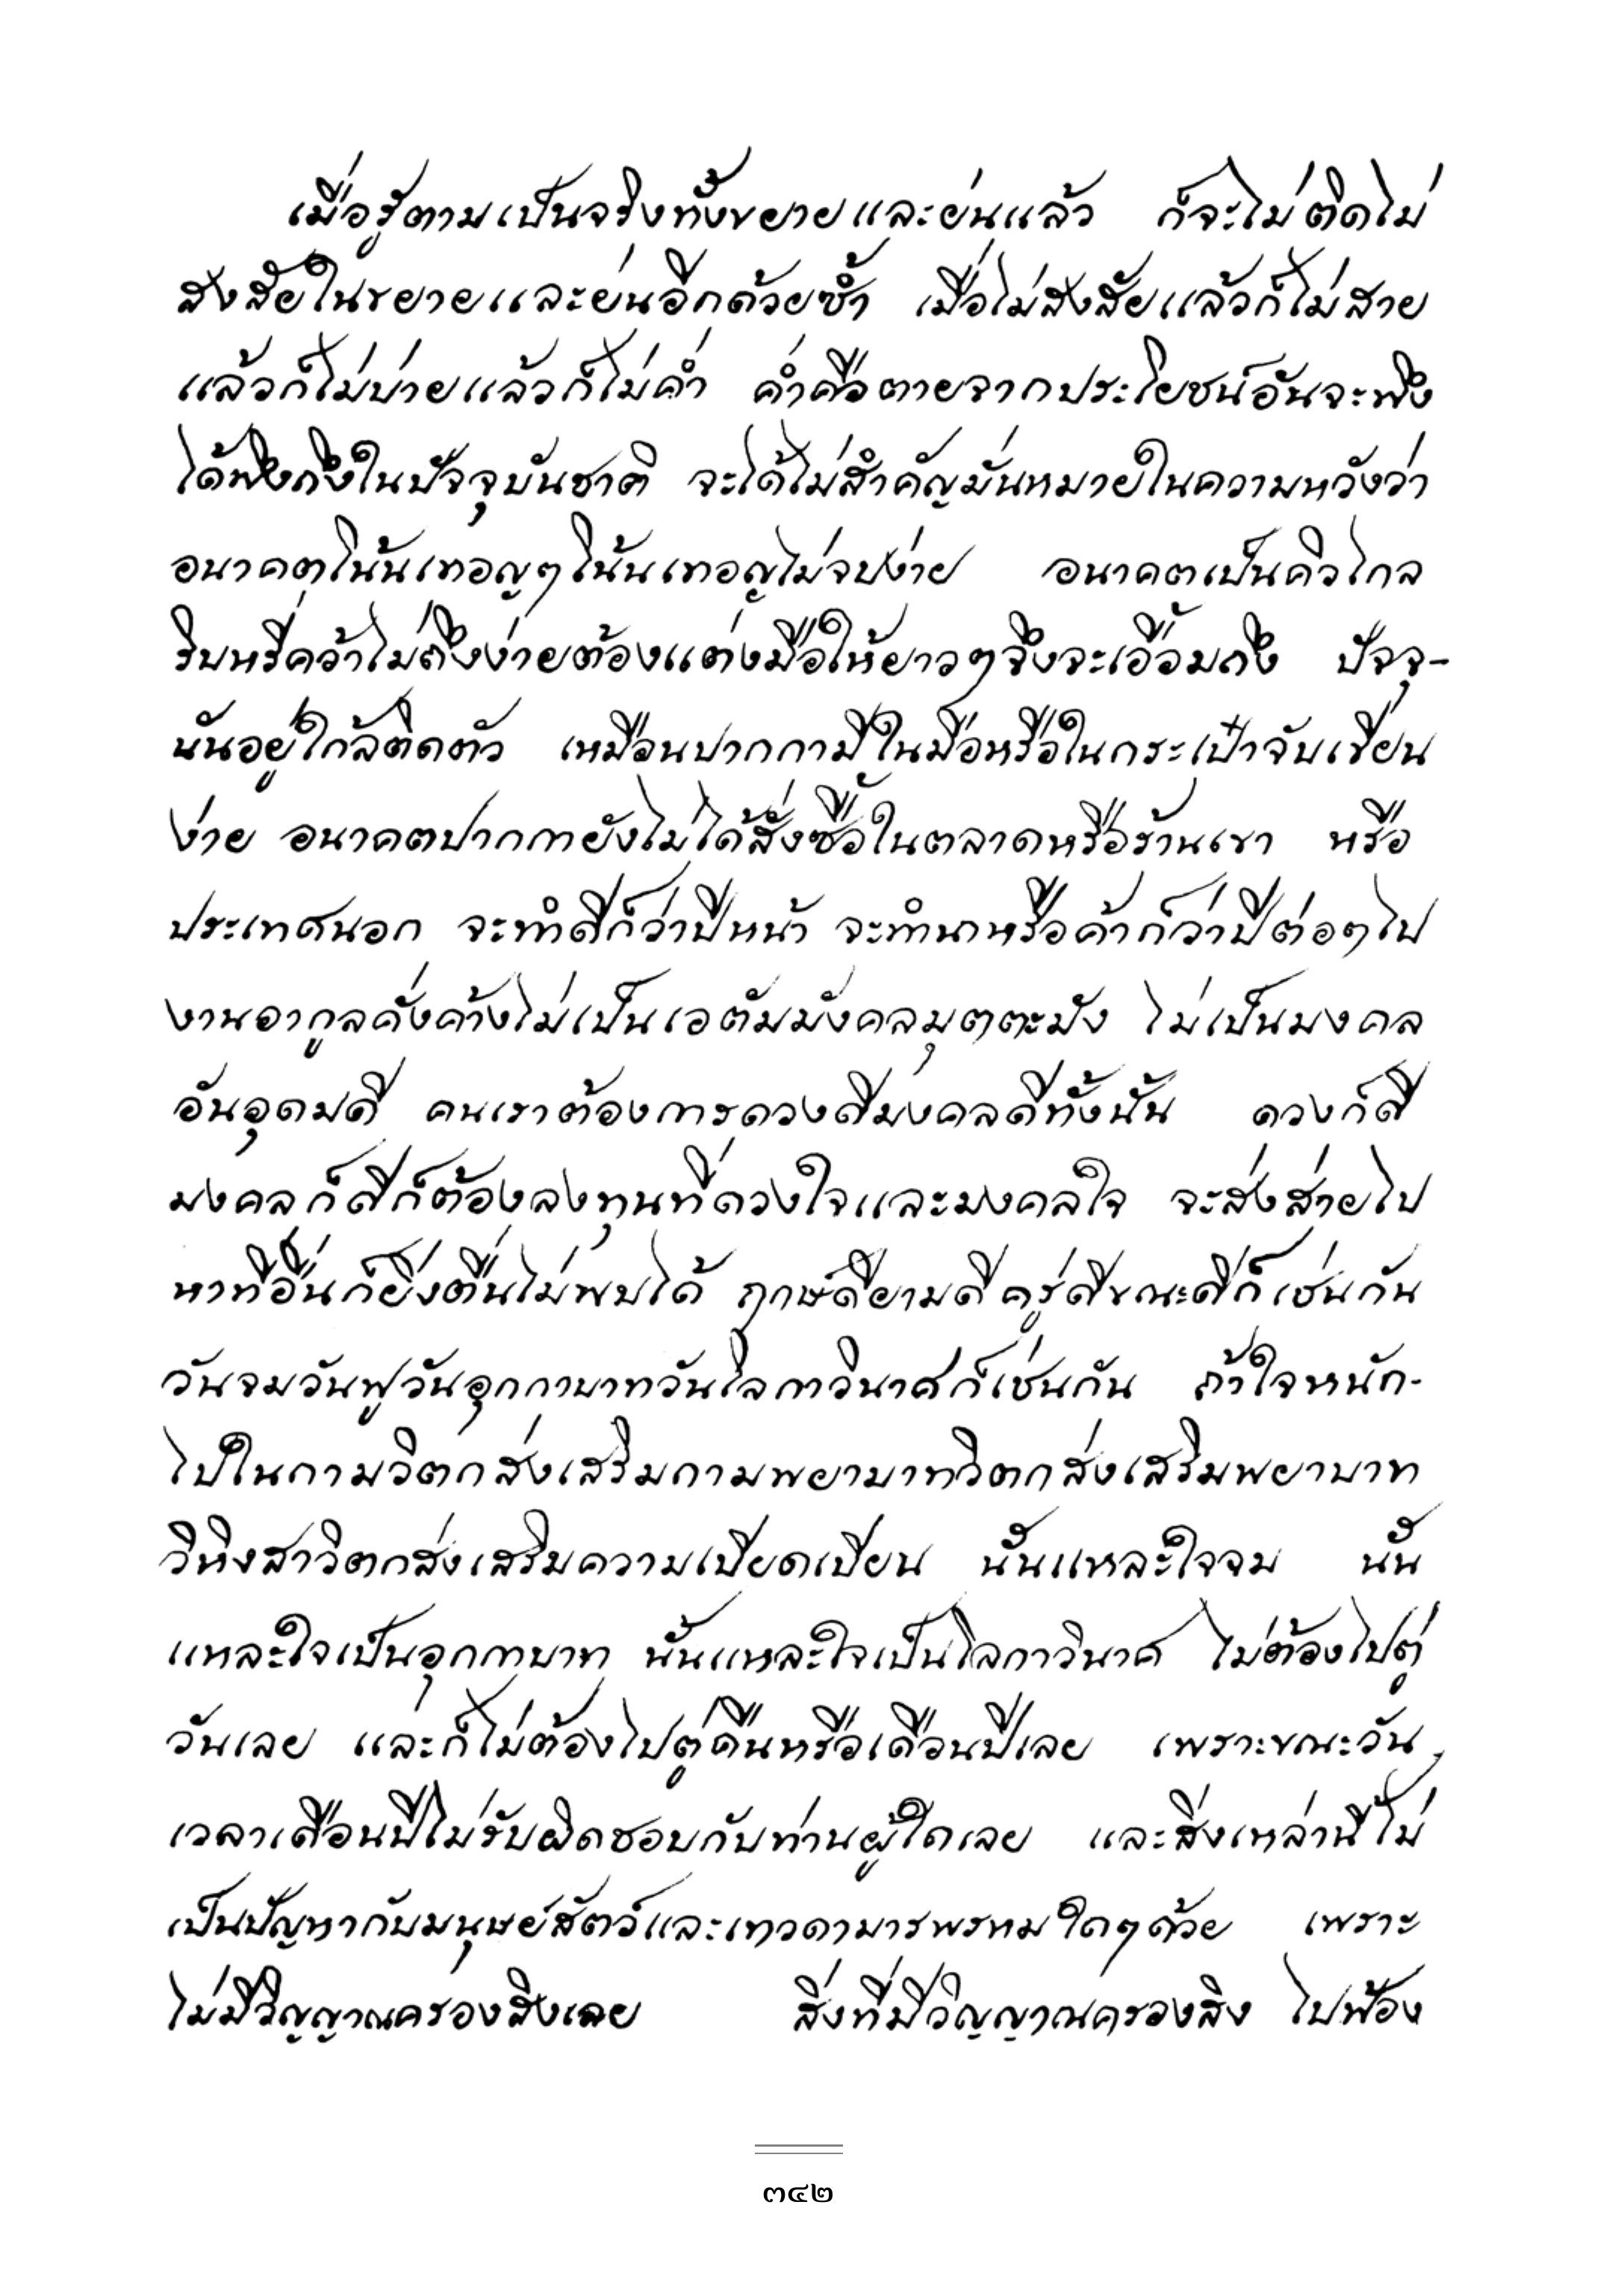 เมื่อรู้ตามเป็นจริงทั้งขยายและย่นแล้ว ก็จะไม่ติดไม่
สงสัยในขยายและย่นอีกด้วยซ้ำ เมื่อไม่สงสัยแล้วก็ไม่สาย
แล้วก็ไม่บ่ายแล้วก็ไม่ค่ำ ค่ำคือตายจากประโยชน์อันจะพึง
ได้พึงถึงในปัจจุบันชาติ จะได้ไม่สำคัญมั่นหมายในความหวังว่า
อนาคตโน้นเทอญๆ โน้นเทอญไม่จบง่าย อนาคตเป็นคิวไกล
ริบหรี่คว้าไม่ถึงง่ายต้องแต่งมือให้ยาวๆจึงจะเอื้อมถึง ปัจจุ-
บันอยู่ใกล้ติดตัว เหมือนปากกามีในมือหรือในกระเป๋าจับเขียน
ง่าย อนาคตปากกายังไม่ได้สั่งซื้อในตลาดหรือร้านเขา หรือ
ประเทศนอก จะทำดีก็ว่าปีหน้า จะทำนาหรือค้าก็ว่าปีต่อๆไป
งานอากูลคั่งค้างไม่เป็นเอตัมมังคลมุตตะมัง ไม่เป็นมงคล
อันอุดมดี คนเราต้องการดวงดีมงคลดีทั้งนั้น ดวงก็ดี
มงคลก็ดีก็ต้องลงทุนที่ดวงใจและมงคลใจ จะส่งส่ายไป
หาที่อื่นก็ยิ่งตื่นไม่พบได้ ฤกษ์ดียามดีครู่ดีขณะดีก็เช่นกัน
วันจมวันฟูวันอุกกาบาทวันโลกาวินาศก็เช่นกัน ถ้าใจหนัก-
ไปในกามวิตกส่งเสริมกามพยาบาทวิตกส่งเสริมพยาบาท
วิหิงสาวิตกส่งเสริมความเบียดเบียน นั้นแหละใจจม นั้น
แหละใจเป็นอุกกาบาท นั้นแหละใจเป็นโลกาวินาศ ไม่ต้องไปตู่
วันเลย และก็ไม่ต้องไปตู่คืนหรือเดือนปีเลย เพราะขณะวัน
เวลาเดือนปีไม่รับผิดชอบกับท่านผู้ใดเลย และสิ่งเหล่านี้ไม่
เป็นปัญหากับมนุษย์สัตว์และเทวดามารพรหมใดๆด้วย เพราะ
ไม่มีวิญญาณครองสิงเลย สิ่งที่มีวิญญาณครองสิง ไปฟ้อง
๓๔๒